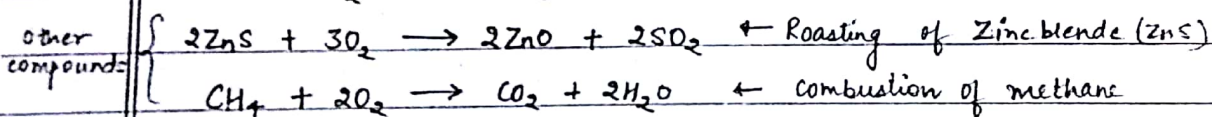 other compounds { 2ZnS + 3O₂ ⟶ 2ZnO + 2SO₂ ← Roasting of Zinc blende (ZnS)
CH₄ + 2O₂ ⟶ CO₂ + 2H₂O ← Combustion of methane